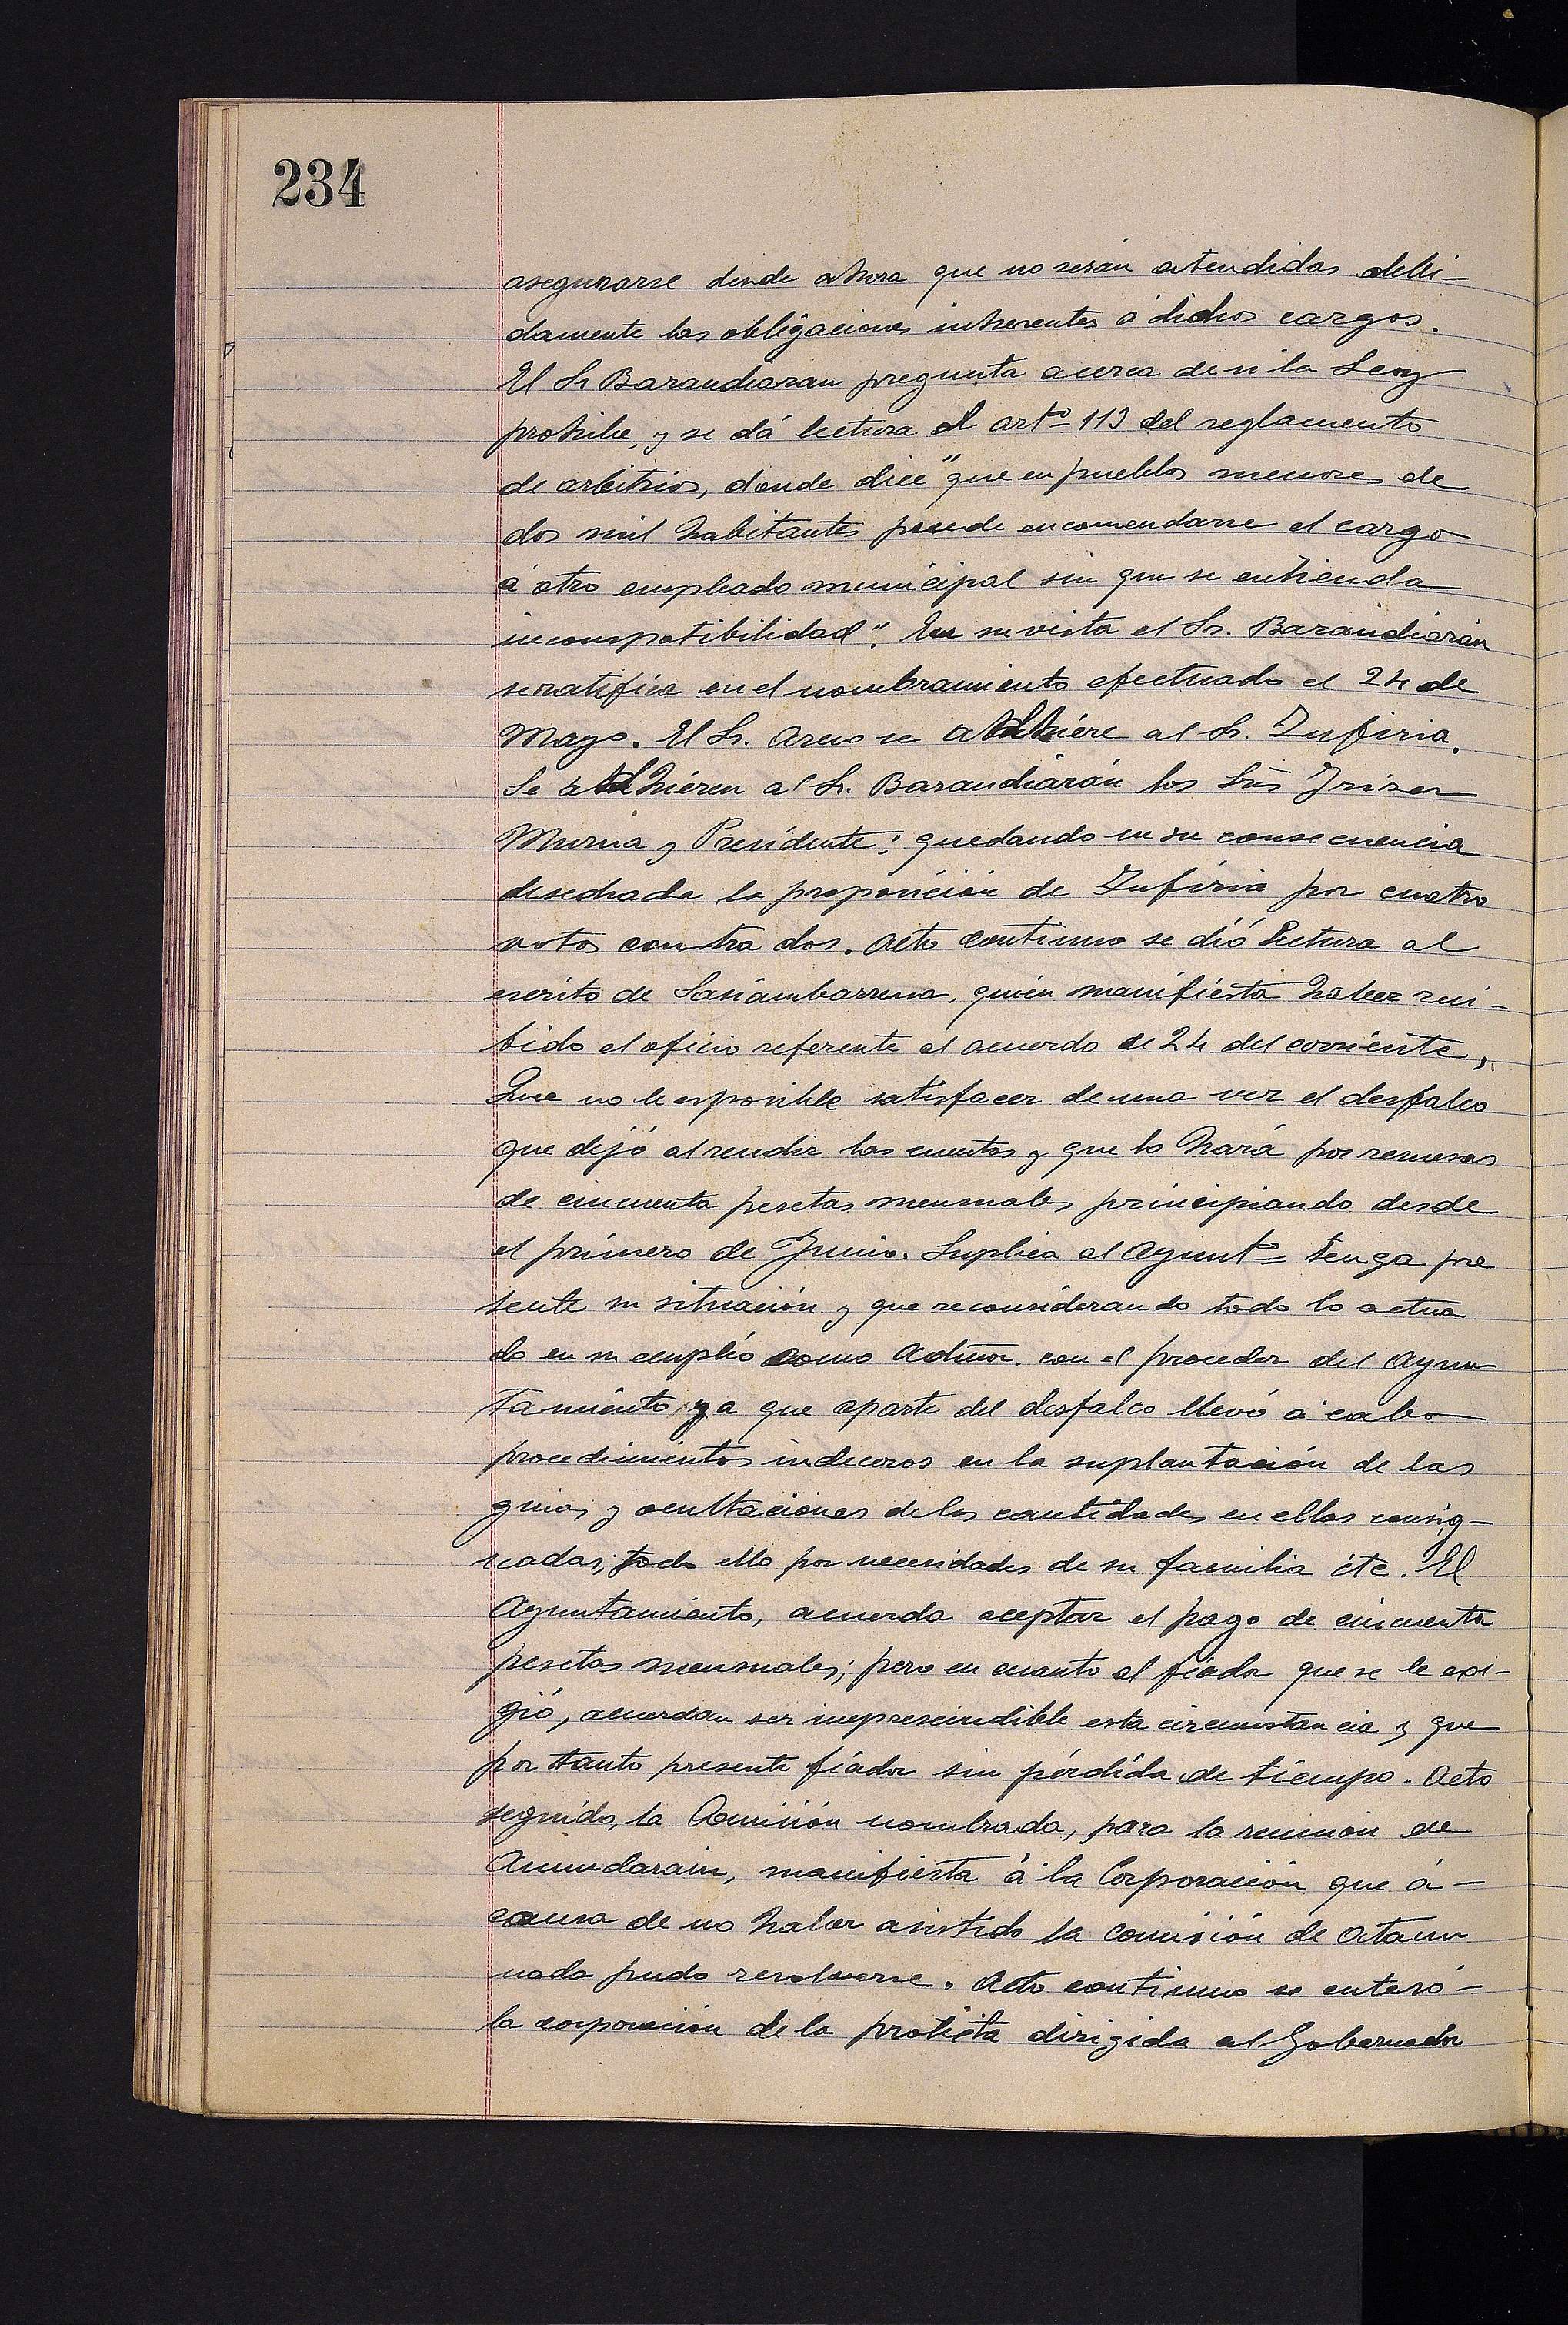 234
asegurarse desde ahora que no serán atendidas debi-
damente las obligaciones inherentes á dichos cargos.
El Sr Barandiaran pregunta acerca de si la Ley
prohibe, y se dá lectura al artº 113 del reglamento
de arbitrios, donde dice "que en pueblos menores de
dos mil habitantes puede encomendarse el cargo
á otro empleado municipal sin que se entienda
incompatibilidad". En su vista el Sr. Barandiarán
se ratifica en el nombramiento efectuado el 24 de
Mayo. El Sr. Areso se adhiére al Sr. Zufiria.
Se adhiéren al Sr. Barandiarán los Srs Irizar
Murua y Presidente; quedando en su consecuencia
desechada la proposición de Zufiria por cuatro
votos contra dos. Acto continuo se dió lectura al
escrito de Sasiambarrena, quién manifiesta haber reci-
bido el oficio referente al acuerdo de 24 del corriente,
Que no le es posible satisfacer de una vez el desfalco
que dejó al rendir las cuentas y que lo hará por remesas
de cincuenta pesetas mensuales principiando desde
el primero de Junio. Suplica al Ayuntº tenga pre
sente su situación y que reconsiderando todo lo actua
do en su empléo como Admor. con el proceder del Ayun
tamiento ya que aparte del desfalco llevó á cabo
procedimientos indecoros en la suplantación de las
guias y ocultaciones de las cantidades en ellas consig-
nadas; todo ello por necesidades de su familia étc. El
Ayuntamiento, acuerda aceptar el pago de cincuenta
pesetas mensuales; pero en cuanto al fiador que se le exi-
gió, acuerdan ser imprescindible esta circunstancia y que
por tanto presente fiador sin pérdida de tiempo. Acto
seguido, la Comisión nombrada, para la reunion de
Amundarain, manifiesta á la Corporación que á-
causa de no haber asistido la comisión de Ataun
nada pudo resolverse. Acto continuo se enteró-
la corporación de la protésta dirigida al Gobernador